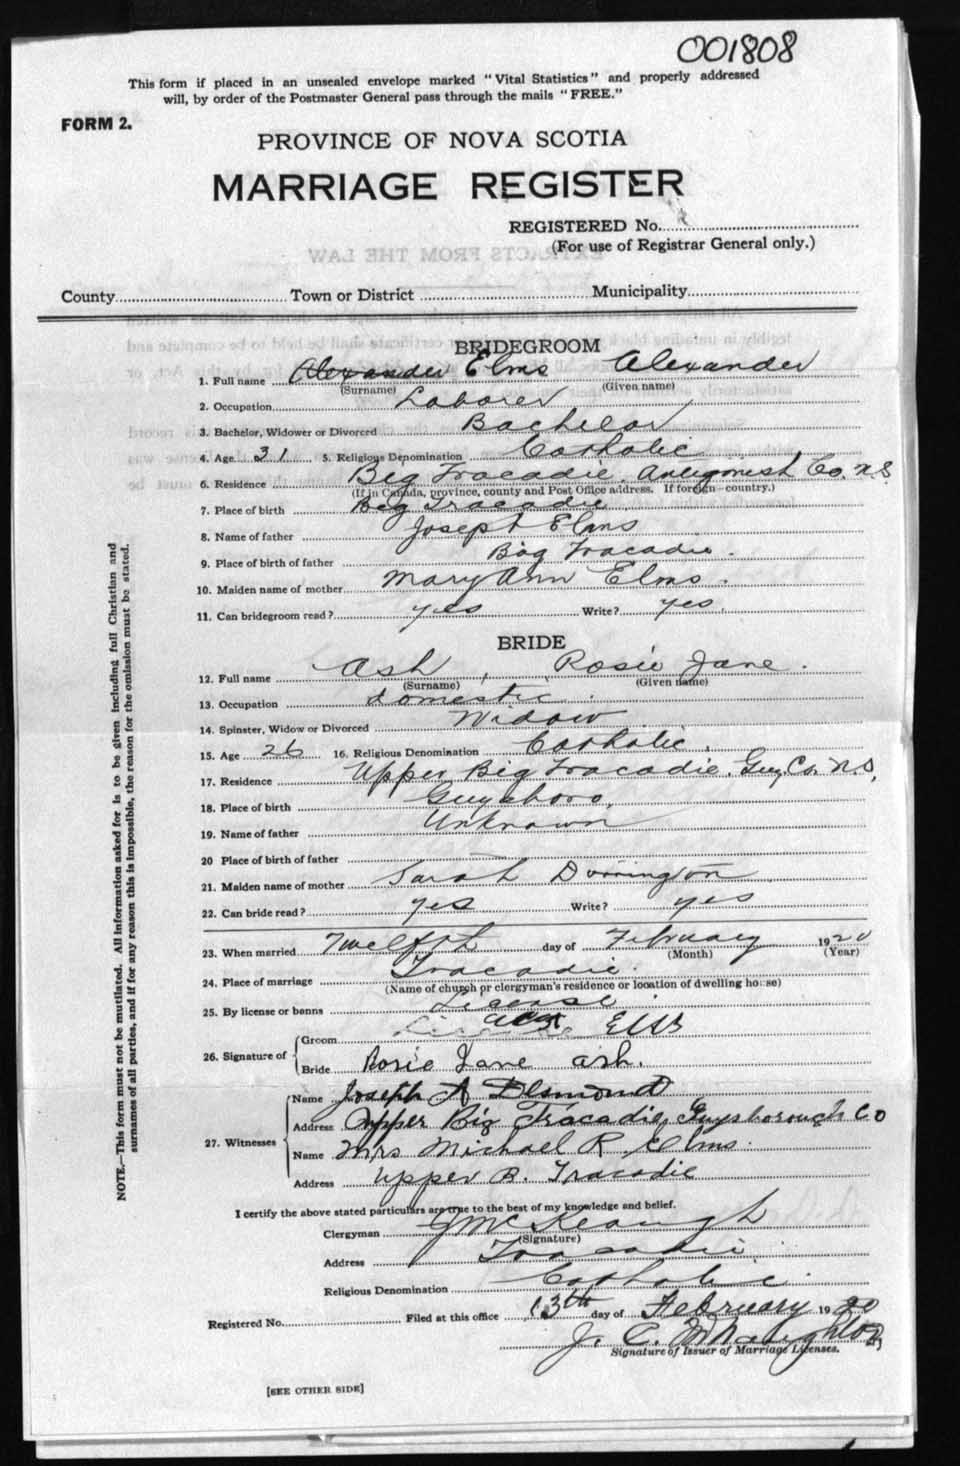 001808
This form if placed in an unsealed envelope marked "Vital Statistics" and properly addressed
will, by order of the Postmaster General pass through the mails "FREE."
FORM 2.
PROVINCE OF NOVA SCOTIA
MARRIAGE REGISTER
REGISTERED No.
(For use of Registrar General only.)
EXTRACTS FROM THE LAW
County Town or District Municipality
BRIDEGROOM
1. Full name Alexander Elms Alexander
(Surname) (Given name)
2. Occupation Laborer
3. Bachelor, Widower or Divorced Bachelor
4. Age 31 5. Religious Denomination Catholic
6. Residence Big Tracadie, Antigonish Co. N.S
(If in Canada, province, county and Post Office address. If foreign—country.)
7. Place of birth Big Tracadie
8. Name of father Joseph Elms
9. Place of birth of father Big Tracadie.
10. Maiden name of mother Mary Ann Elms.
11. Can bridegroom read? yes Write? yes.
BRIDE
12. Full name Ash, Rosie Jane.
(Surname) (Given name)
13. Occupation domestic.
14. Spinster, Widow or Divorced Widow
15. Age 26 16. Religious Denomination Catholic.
17. Residence Upper Big Tracadie. Guy. Co. N.S,
18. Place of birth Guysboro,
19. Name of father Unknown
20 Place of birth of father
21. Maiden name of mother Sarah Dorrington
22. Can bride read? yes Write? yes
23. When married Twelfth day of February 1920
(Month) (Year)
24. Place of marriage Tracadie.
(Name of church or clergyman's residence or location of dwelling house)
25. By license or banns License.
26. Signature of Groom
Bride Rosie Jane ash.
27. Witnesses Name Joseph A Desmond
Address Upper Big Tracadie, Guysborough Co
Name Mrs Michael R Elms.
Address Upper B. Tracadie
I certify the above stated particulars are true to the best of my knowledge and belief.
Clergyman J McKeough
(Signature)
Address Tracadie
Religious Denomination Catholic.
Registered No. Filed at this office 13th day of February 1920
J. C. McNaughton
Signature of Issuer of Marriage Licenses.
[SEE OTHER SIDE]
NOTE.—This form must not be mutilated. All information asked for is to be given including full Christian and
surnames of all parties, and if for any reason this is impossible, the reason for the omission must be stated.